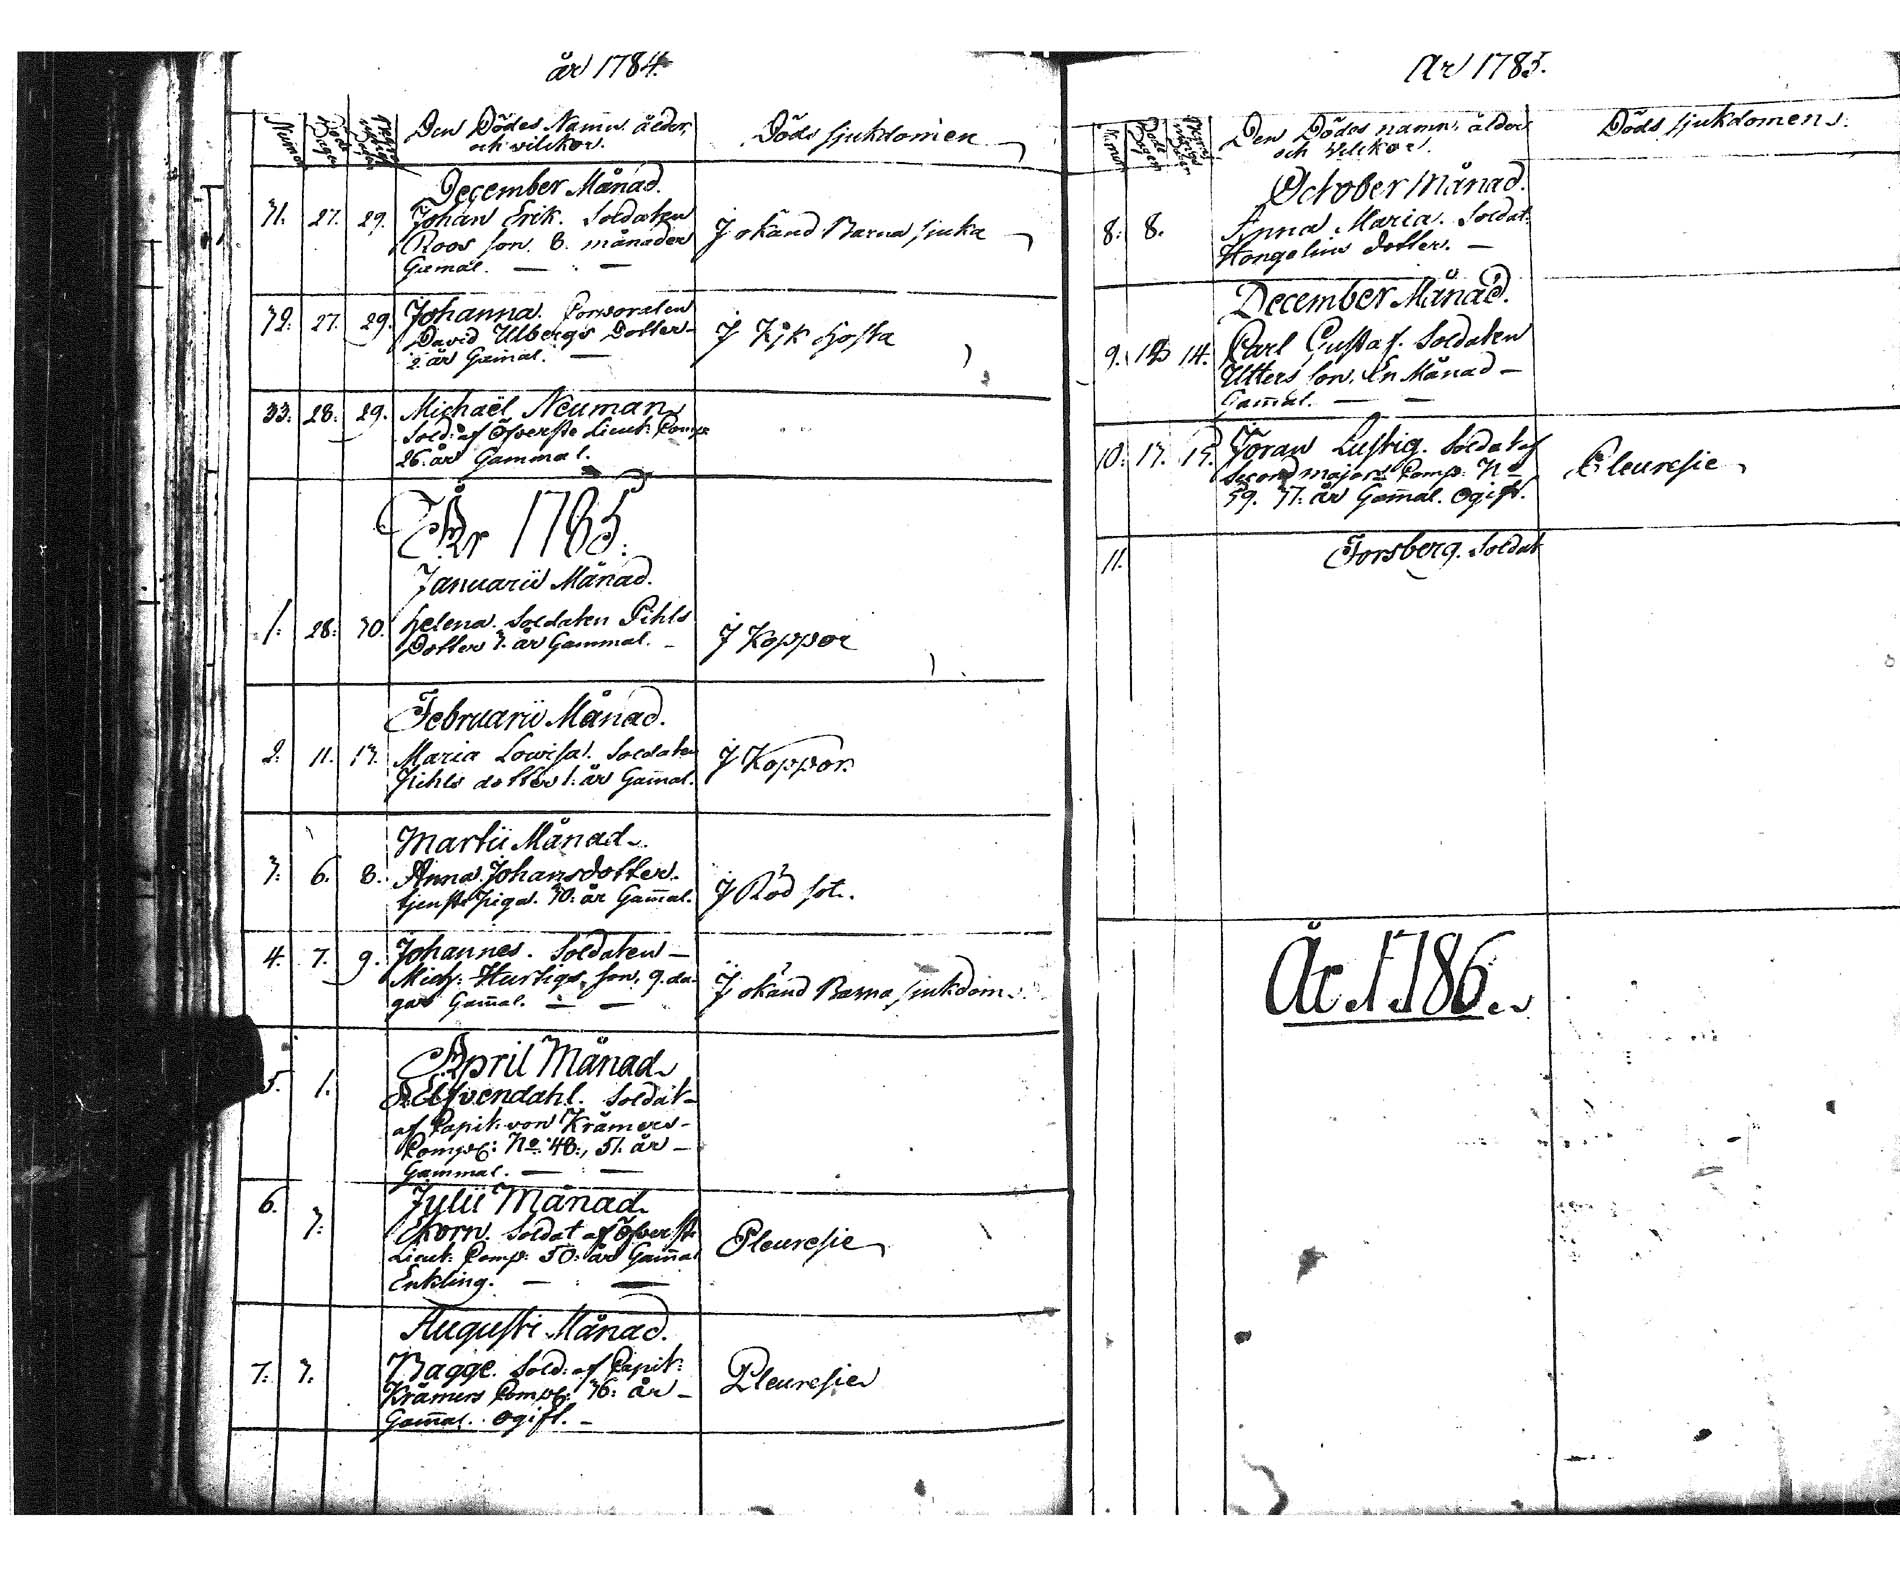 år 1784.
Numer
Döde Dagen
Den Dödes Namn. ålder,
och vilckor.
Döds sjukdomen
December Månad.
31. 27. 29. Johan Erik. Soldaten
Roos son. 8. månader
Gamal.
J okänd Barna sjuka
32. 27. 29. Johanna. Corporalen
David Ulbergs Dotter
2 år Gamal.
J Kjk hosta
33. 28. 29. Michaël Neuman
Sold: af Öfverste Lieut: Comp:
26. år Gammal.
År 1785.
Januarii Månad.
1. 28. 30. Helena. Soldaten Pihls
Dotter 3. år Gammal.
J Koppor
Februarii Månad.
2. 11. 13. Maria Lovisa. Soldaten
Pihls dotter 1. år Gam̄al.
J Koppor.
Martii Månad.
3. 6. 8. Anna Johansdotter.
tjenste piga. 30. år Gam̄al.
J Röd sot.
4. 7. 9. Johannes. Soldaten
Mich: Hurtigs son. 9. da-
gar Gam̄al.
J okänd Barna sjukdom.
April Månad
5. 1. Elfvendahl. Soldat
af Capit: von Krämers
Comp: No. 48., 51. år
Gammal.
Julii Månad.
6. 3. Thorn. Soldat af Öfverste
Lieut: Comp: 50. år Gam̄al
Enkling.
Pleuresie
Augusti Månad.
7. 3. Bagge. Sold: af Capit:
Krämers Comp: 36. år
Gam̄al. Ogift.
Pleuresie
År 1785.
Numer
Döde Dagen
Den Dödes namn, ålder
och vilckor.
Döds sjukdomen.
October Månad.
8. 8. Anna Maria. Soldat.
Hongelins dotter.
December Månad.
9. 14. Carl Gustaf. Soldaten
Utters son. En Månad
Gam̄al.
10. 17. 19. Jöran Lustig. Soldat af
Second majors Comp: No
59. 37. år Gam̄al. Ogift.
Pleuresie
11. Forsberg. Soldat
År 1786.